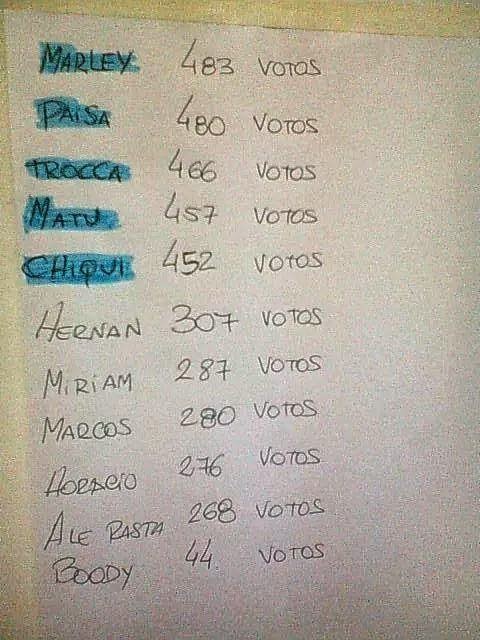 MARLEY 483 VOTOS
PAISA 480 VOTOS
TROCCA 466 VOTOS
MATU 457 VOTOS
CHIQUI 452 VOTOS
HERNAN 307 VOTOS
MIRIAM 287 VOTOS
MARCOS 280 VOTOS
HORACIO 276 VOTOS
ALE RASTA 268 VOTOS
BOODY 44 VOTOS